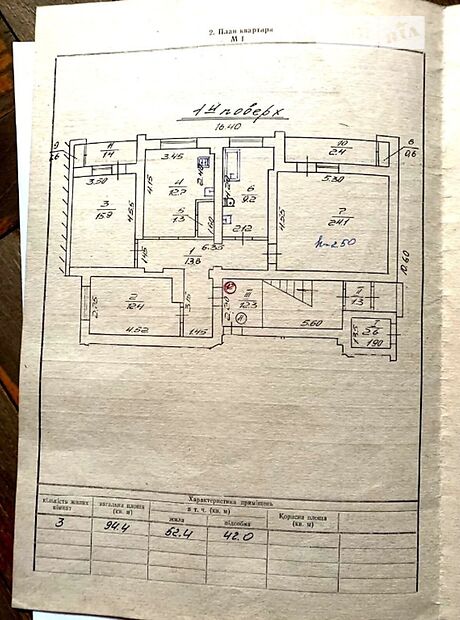 2. План квартири
М 1
1й поверх
16.40
9
0.6
8
1.4
10
2.4
8
0,6
3.50
3.45
2.40
5.30
4.15
4
12.7
6
9.2
7
24.1
3
15.9
4.55
5
1.3
4.55
h=2.50
2.12
6.35
1.45
1
13.8
10.60
2
12.4
2.75
3.15
III
12.3
I
1.3
4.52
1.45
5.60
2.6
1.90
Характеристика приміщень
кількість жилих кімнат
загальна площа (кв. м)
в т. ч. (кв. м)
жила
підсобна
Корисна площа (кв. м)
3
94.4
52.4
42.0